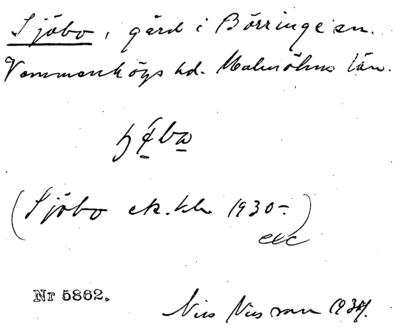 Sjöbo, gård i Börringe sn.
Vemmenhögs hd. Malmöhus län.
(Sjöbo ek. kbl 1930-)
etc
Nr 5862.
Nils Nilsson